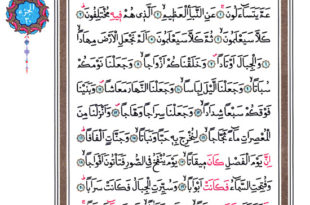 عَمَّ يَتَسَاءَلُونَ ۝١ عَنِ النَّبَإِ الْعَظِيمِ ۝٢ الَّذِي هُمْ فِيهِ مُخْتَلِفُونَ ۝٣
كَلَّا سَيَعْلَمُونَ ۝٤ ثُمَّ كَلَّا سَيَعْلَمُونَ ۝٥ أَلَمْ نَجْعَلِ الْأَرْضَ مِهَادًا ۝٦
وَالْجِبَالَ أَوْتَادًا ۝٧ وَخَلَقْنَاكُمْ أَزْوَاجًا ۝٨ وَجَعَلْنَا نَوْمَكُمْ
سُبَاتًا ۝٩ وَجَعَلْنَا اللَّيْلَ لِبَاسًا ۝١٠ وَجَعَلْنَا النَّهَارَ مَعَاشًا ۝١١ وَبَنَيْنَا
فَوْقَكُمْ سَبْعًا شِدَادًا ۝١٢ وَجَعَلْنَا سِرَاجًا وَهَّاجًا ۝١٣ وَأَنْزَلْنَا مِنَ
الْمُعْصِرَاتِ مَاءً ثَجَّاجًا ۝١٤ لِنُخْرِجَ بِهِ حَبًّا وَنَبَاتًا ۝١٥ وَجَنَّاتٍ أَلْفَافًا ۝١٦
إِنَّ يَوْمَ الْفَصْلِ كَانَ مِيقَاتًا ۝١٧ يَوْمَ يُنْفَخُ فِي الصُّورِ فَتَأْتُونَ أَفْوَاجًا ۝١٨
وَفُتِحَتِ السَّمَاءُ فَكَانَتْ أَبْوَابًا ۝١٩ وَسُيِّرَتِ الْجِبَالُ فَكَانَتْ سَرَابًا ۝٢٠